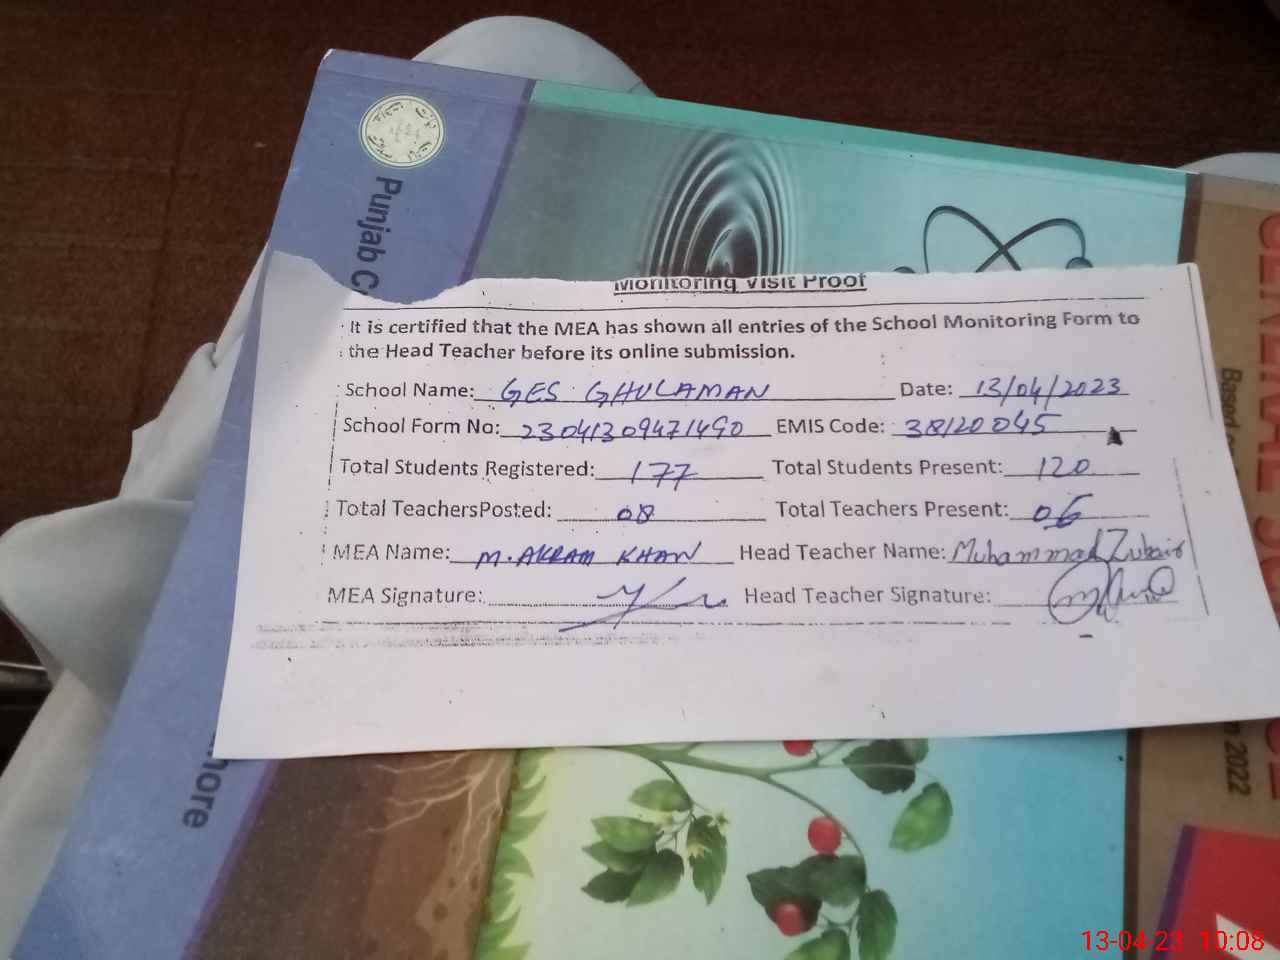 Punjab C
Monitoring Visit Proof
It is certified that the MEA has shown all entries of the School Monitoring Form to
the Head Teacher before its online submission.
School Name: GES GHULAMAN Date: 13/04/2023
School Form No: 23041309471490 EMIS Code: 38120045
Total Students Registered: 177 Total Students Present: 120
Total TeachersPosted: 08 Total Teachers Present: 06
MEA Name: M. AKRAM KHAN Head Teacher Name: Muhammad Zubair
MEA Signature: Head Teacher Signature:
hore
GENERAL SC
Based
2022
13-04-23 10:08